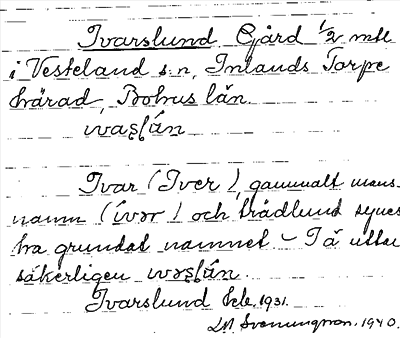 Ivarslund. Gård 1/2 mtl
i Vesteland s:n, Inlands Torpe
härad, Bohus län.
ivaʂḷán
Ivar (Iver), gammalt mans-
namn (ívər) och trädlund synes
ha grundat namnet – I ä uttal
säkerligen
Ivarslund 1931.
Svenungsson. 1940.